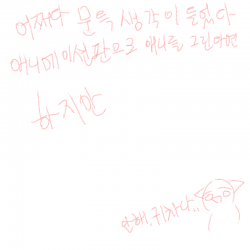 어쩌다 문득 생각이 들었다
애니메이션판으로 애니를 그린다면
하지만
안해. 귀찮다..